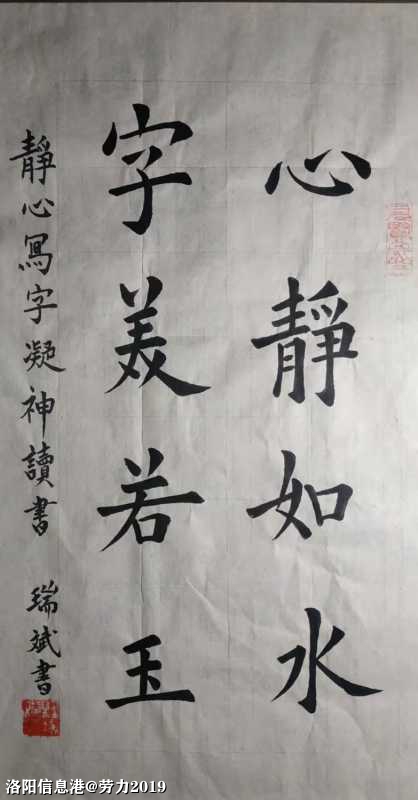 心靜如水
字美若玉
靜心寫字凝神讀書 瑞斌書
洛阳信息港@劳力2019